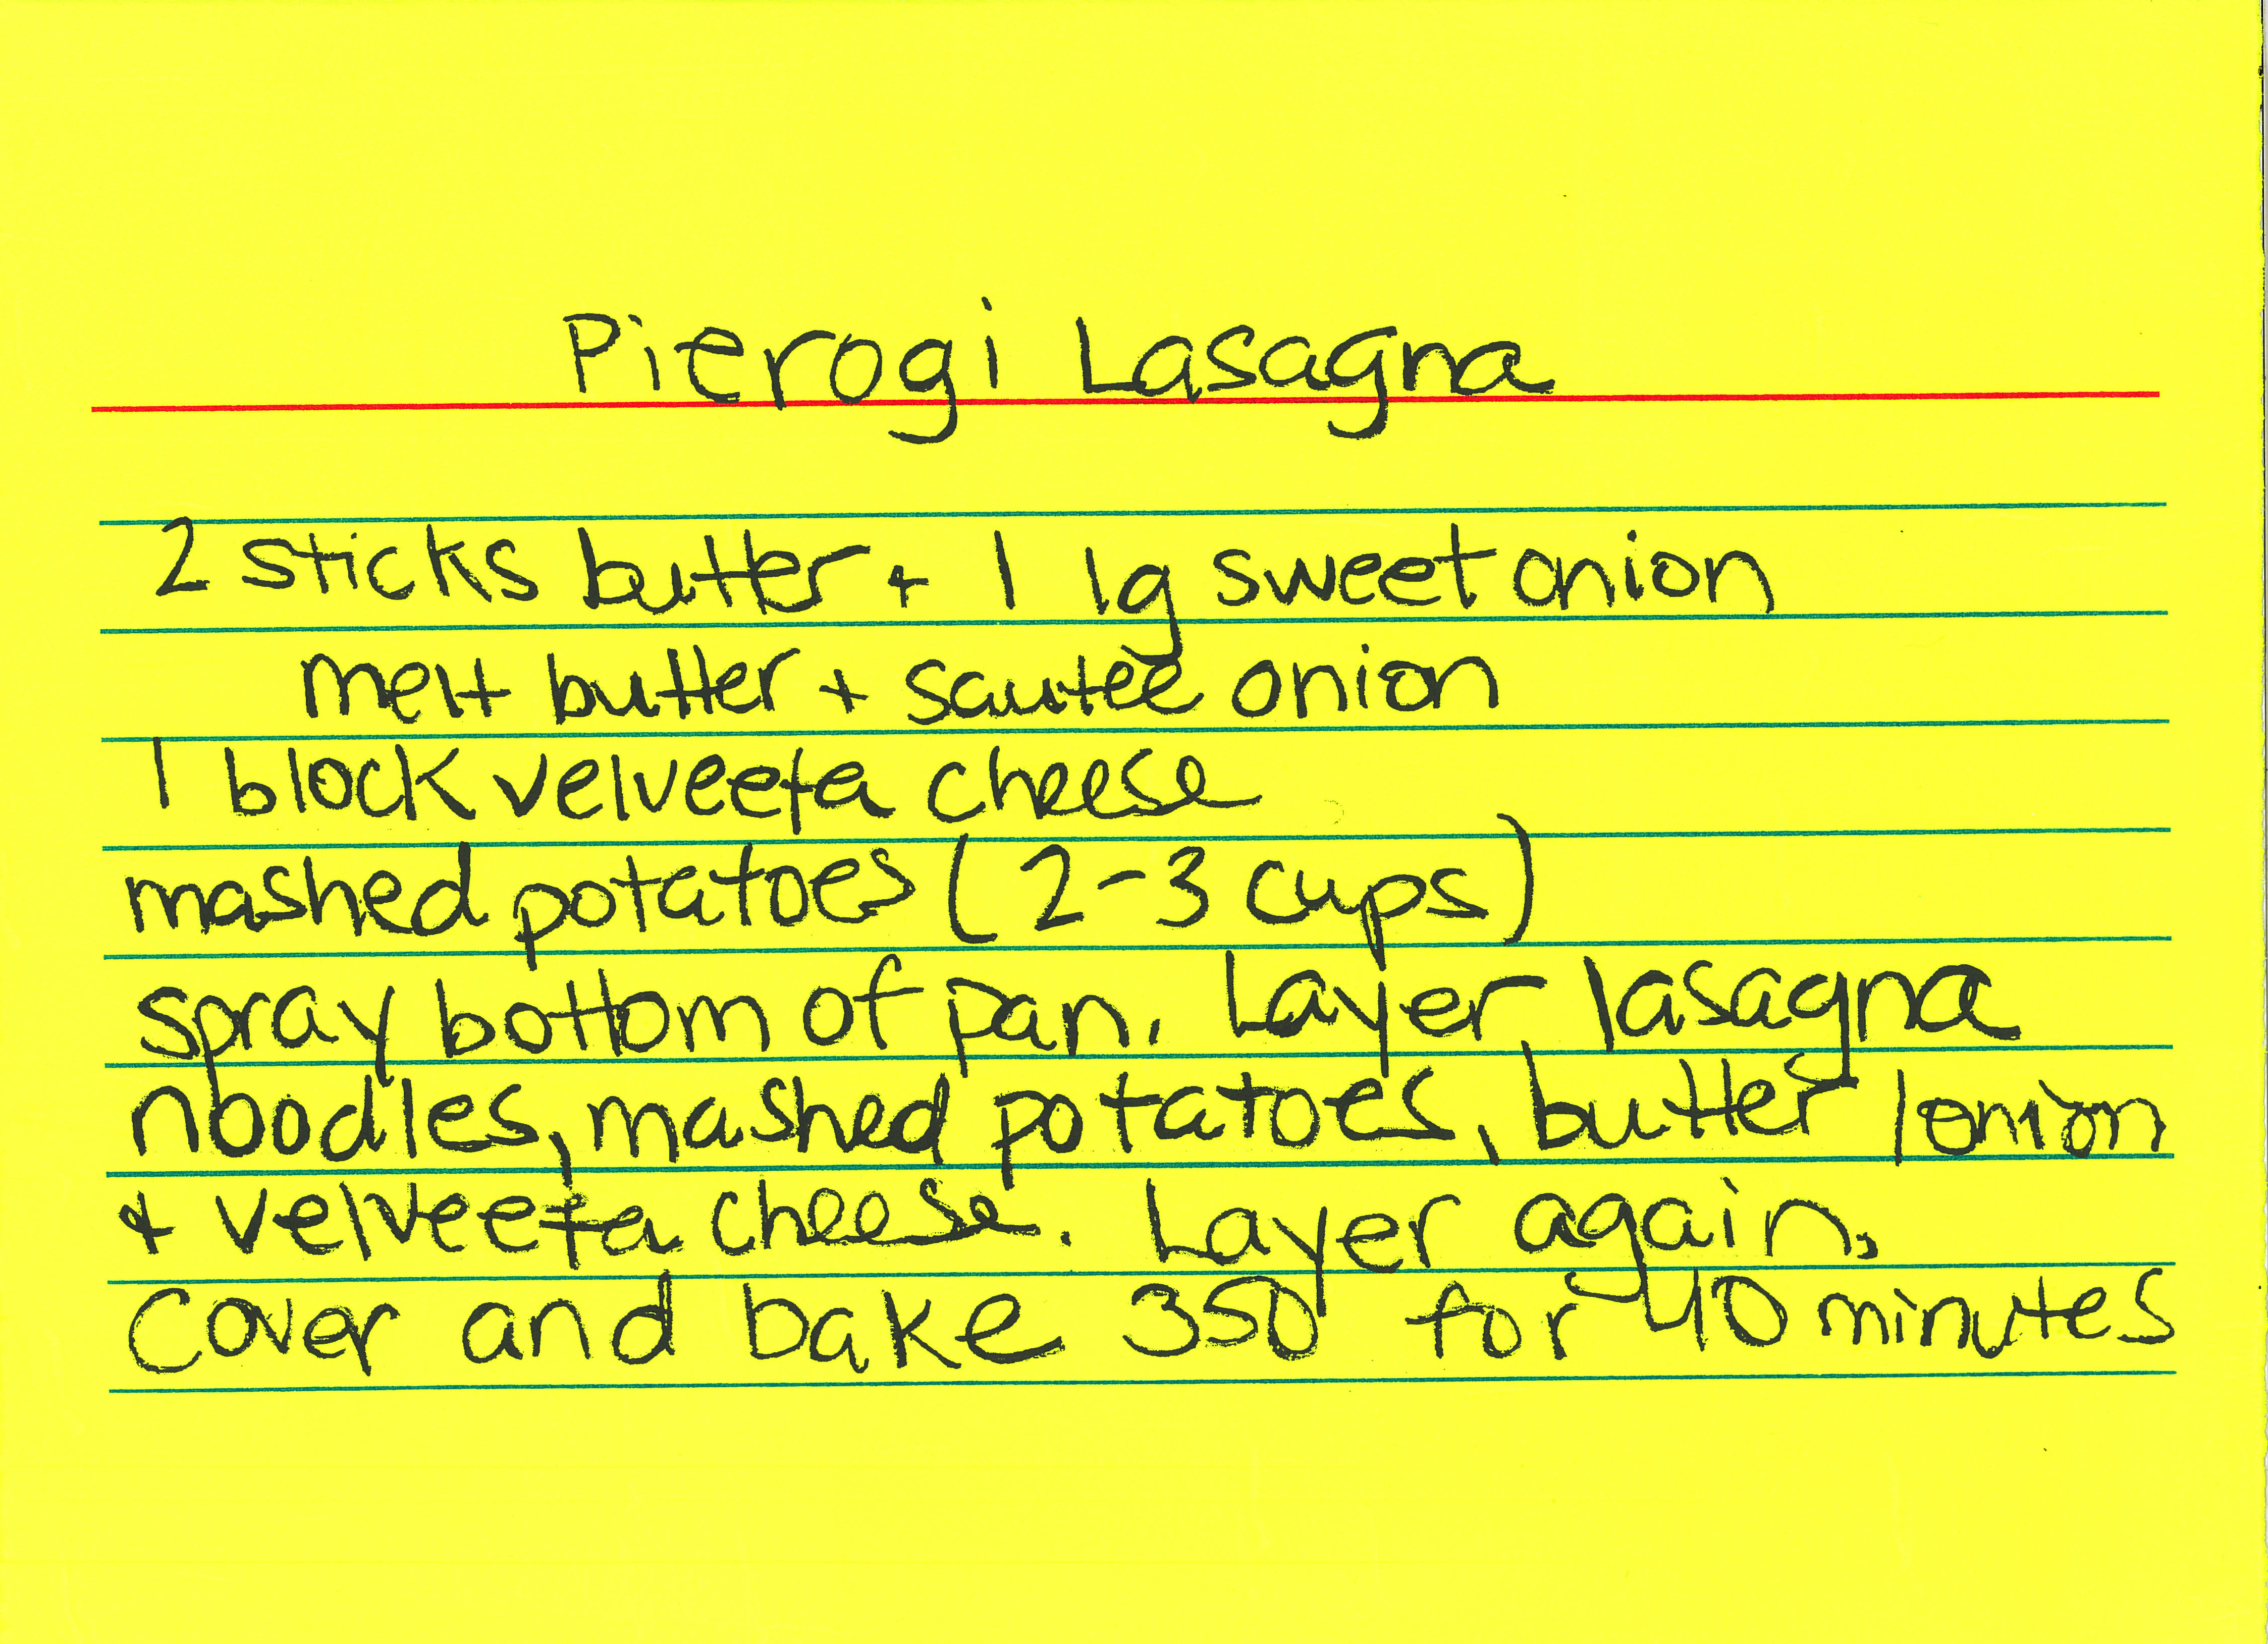 Pierogi Lasagna
2 sticks butter + 1 lg sweet onion
melt butter + sauteé onion
1 block velveeta cheese
mashed potatoes (2-3 cups)
spray bottom of pan. Layer lasagna
noodles, mashed potatoes, butter/onion
+ velveeta cheese. Layer again.
Cover and bake 350° for 40 minutes